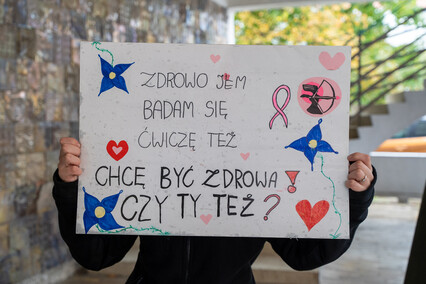 ZDROWO JEM
BADAM SIĘ
ĆWICZĘ TEŻ
CHCĘ BYĆ ZDROWA!
CZY TY TEŻ?